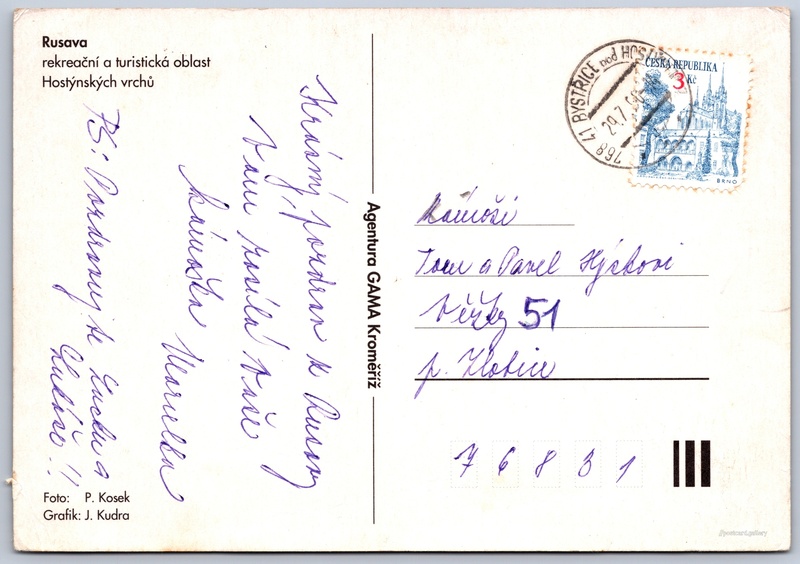 Rusava
rekreační a turistická oblast
Hostýnských vrchů
Krásný pozdrav z Rusavy
Vám posílá Vaše
kámoška Marcelka
PS: Pozdravuj te Lucku a
Lukáše!!
Foto: P. Kosek
Grafik: J. Kudra
Agentura GAMA Kroměříž
768 41 BYSTŘICE pod HOSTÝNEM
29.7.
ČESKÁ REPUBLIKA
3 Kč
BRNO
kámoši
Tom a Pavel
Věžky 51
p. Zlobice
76831